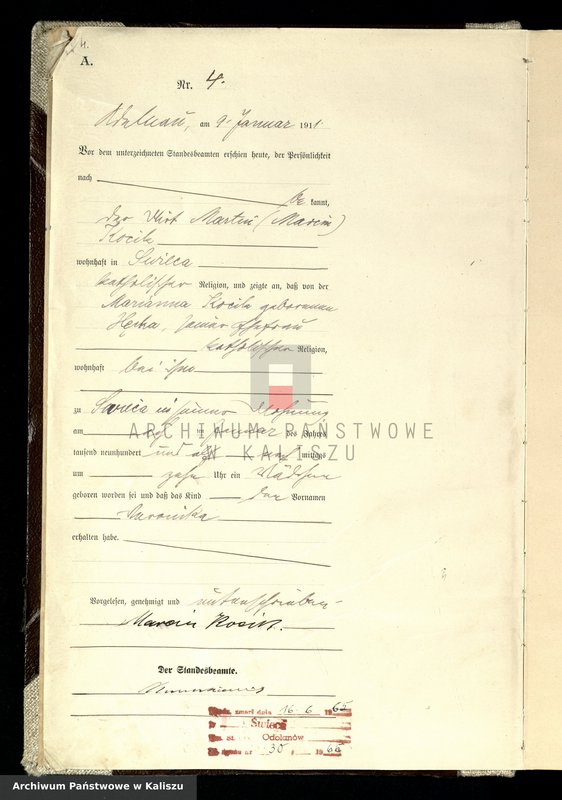 4.
A.
Nr. 4.
Adelnau, am 9. Januar 1911.
Vor dem unterzeichneten Standesbeamten erschien heute, der Persönlichkeit
nach
be kannt,
der Wirt Martin (Marcin)
Kocik
wohnhaft in Swieca
katholischer Religion, und zeigte an, daß von der
Marianna Kocik geborenen
seiner Ehefrau
katholischer Religion,
wohnhaft bei ihm
zu Swieca in seiner Wohnung
am ten Januar des Jahres
tausend neunhundert und elf mittags
um zehn Uhr ein Mädchen
geboren worden sei und daß das Kind den Vornamen
Weronika
erhalten habe.
Vorgelesen, genehmigt und unterschrieben
Marcin Kocik
Der Standesbeamte.
zmarł dnia 16. 6. 1965
Świeca
Odolanów
nr 30 1965
ARCHIWUM PAŃSTWOWE
W KALISZU
Archiwum Państwowe w Kaliszu